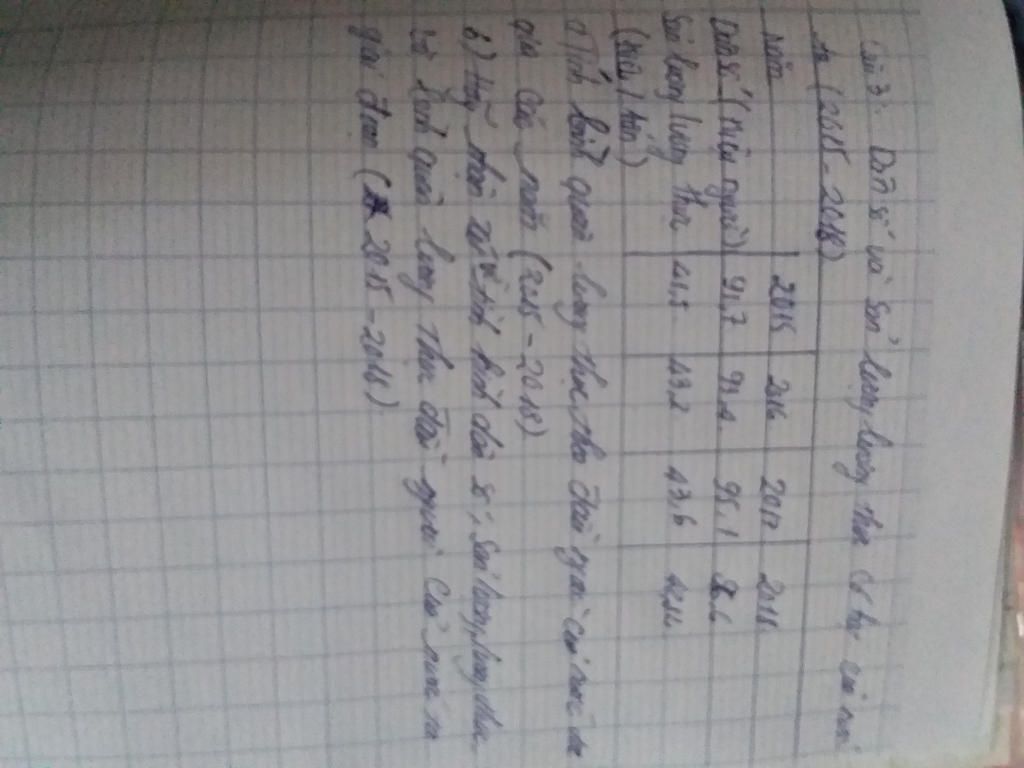 Câu 3: Dân số và sản lượng lương thực có hạt của nước
ta (2015 - 2018)
Năm 2015 2016 2017 2018
Dân số (triệu người) 91,7 93,4 95,1
Sản lượng lương thực 43,2 43,6
(triệu tấn)
a Tính bình quân lương thực theo đầu người của nước ta
qua các năm (2015 - 2018)
b) Hãy nhận xét tình hình dân số, sản lượng lương thực
và bình quân lương thực đầu người của nước ta
giai đoạn (2015 - 2018).